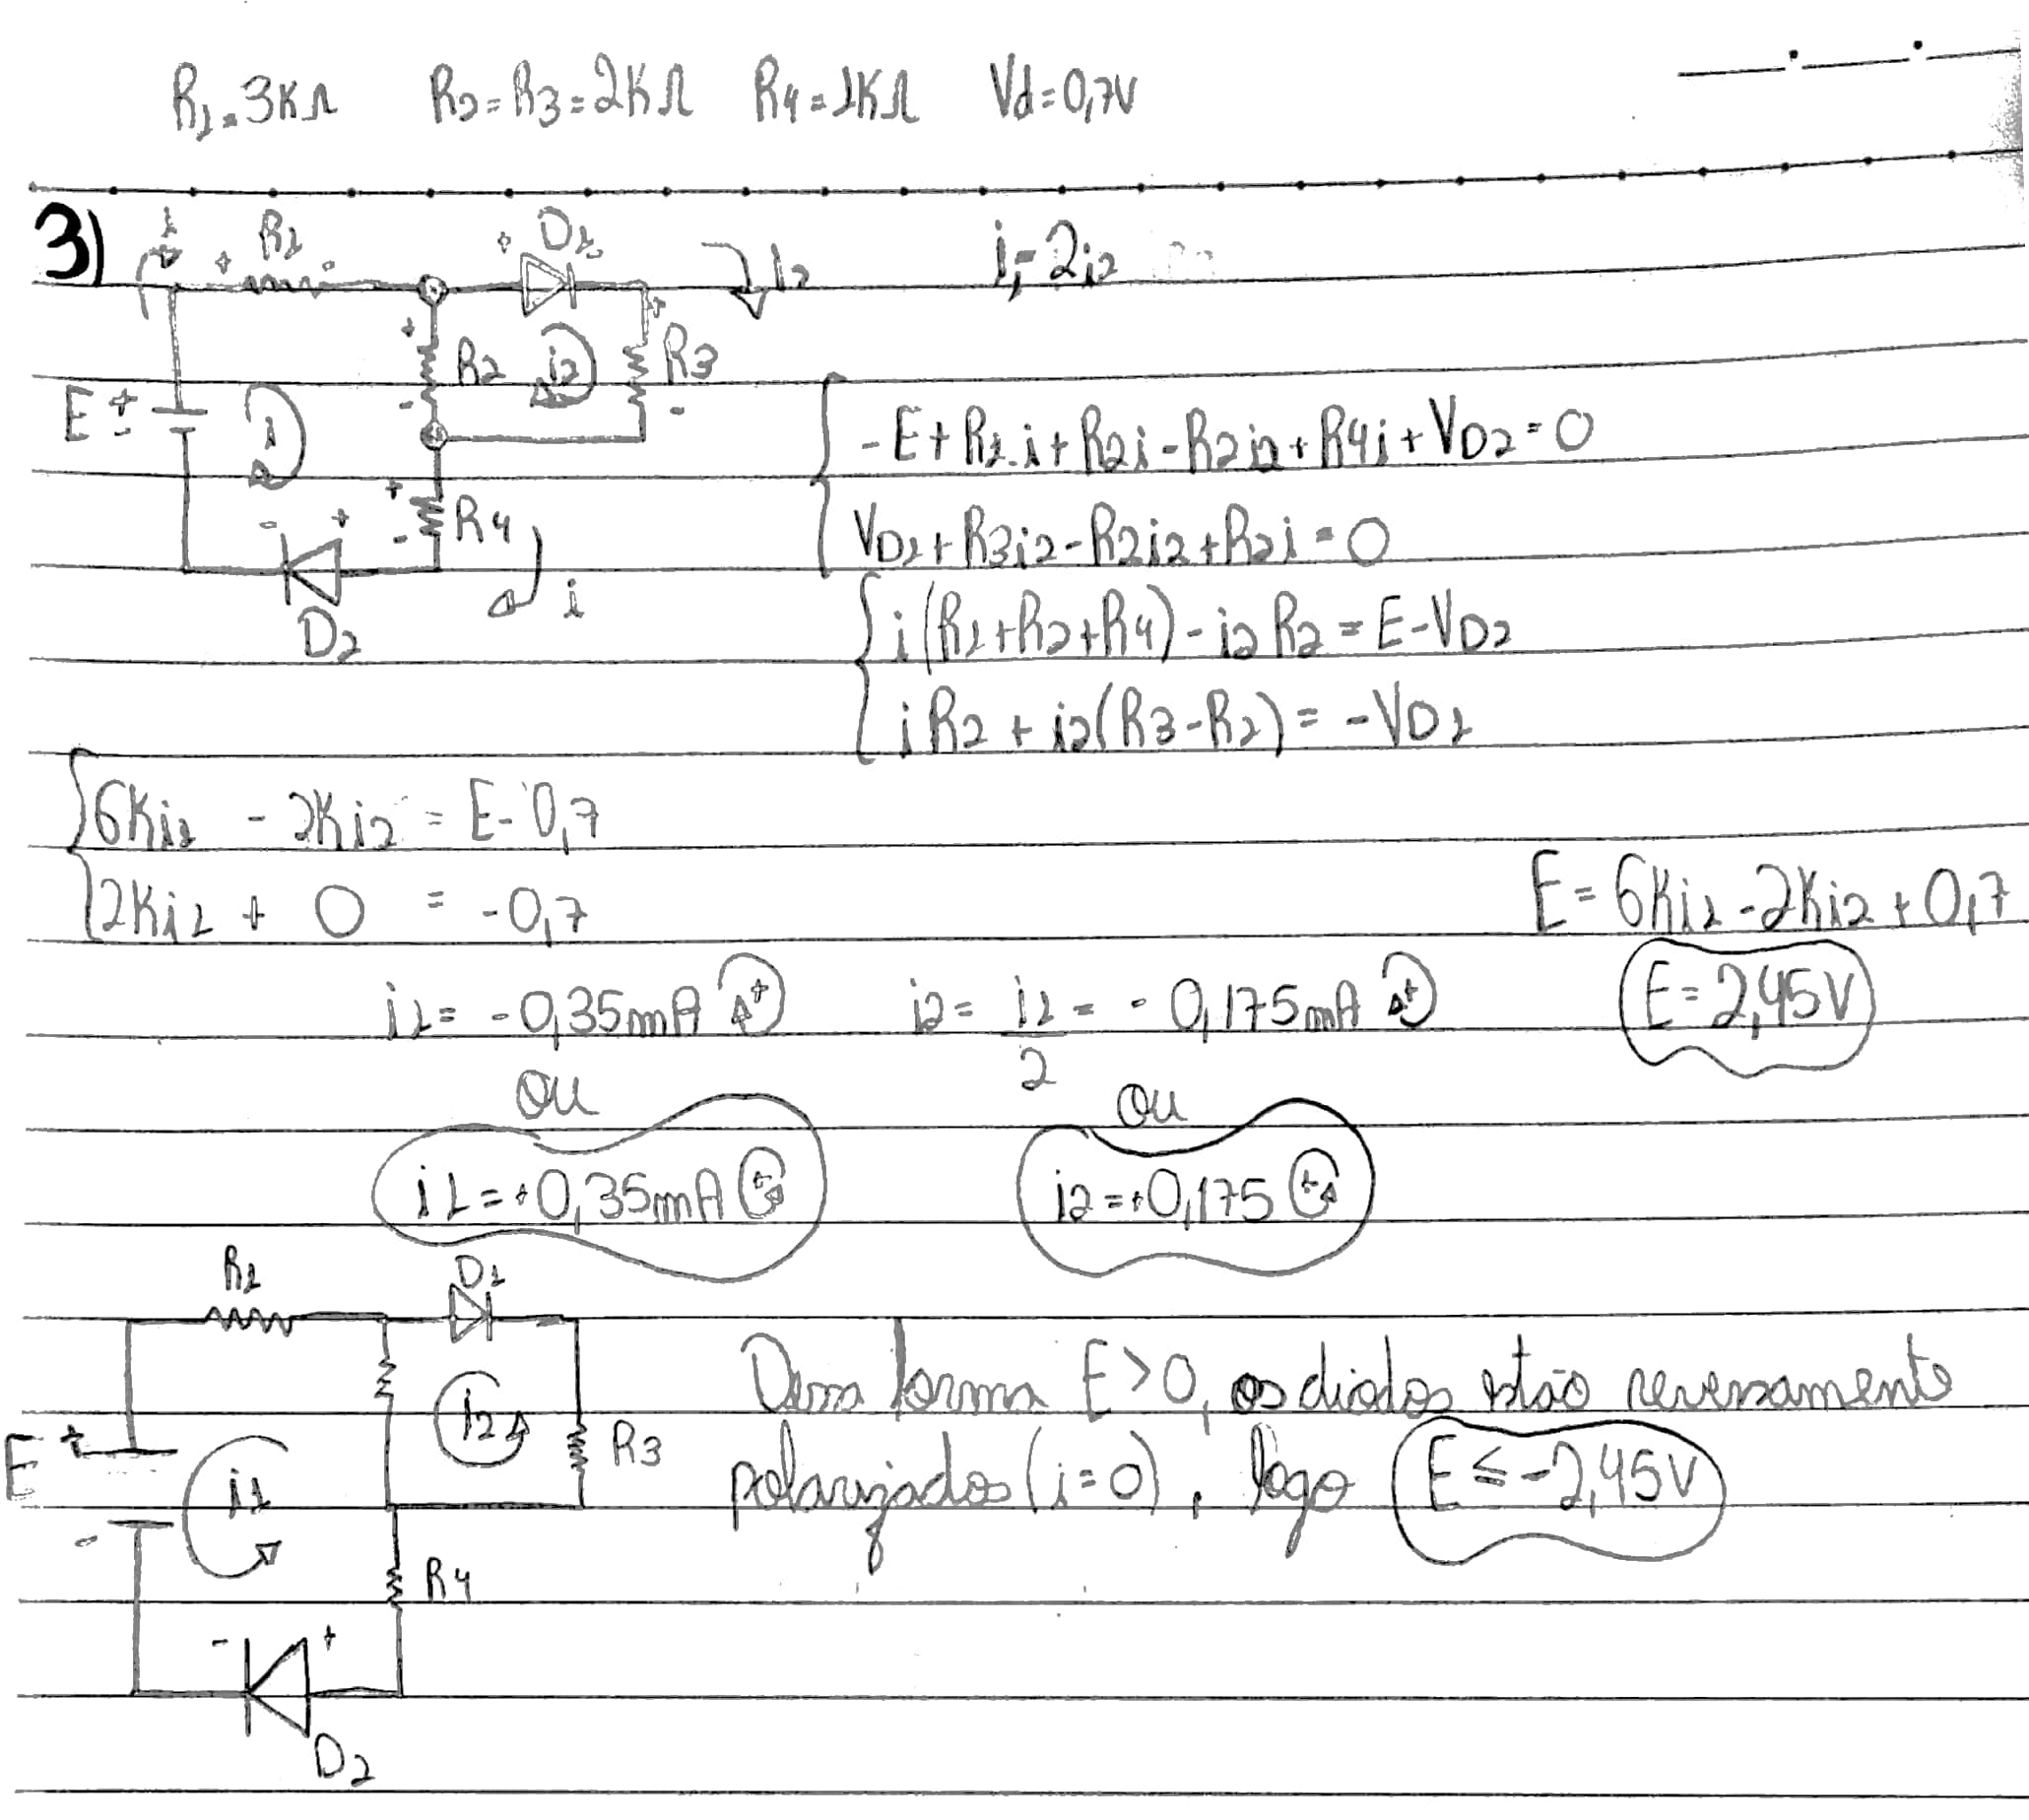 R1=3KΩ R2=R3=2KΩ R4=1KΩ Vd=0,7V
3)
i R1 D1 i2
+ - +
i1=2i2
E + - i + R2 - i2 + R3 -
-E+R1.i+R2i-R2i2+R4i+VD2=0
+ R4 -
VD1+R3i2-R2i2+R2i=0
- + i
D2
i(R1+R2+R4)-i2R2=E-VD2
iR2+i2(R3-R2)=-VD1
6Ki1 - 2Ki2 = E-0,7
2Ki1 + 0 = -0,7
E=6Ki1-2Ki2+0,7
i1=-0,35mA + i2=i1/2=-0,175mA + E=2,45V
ou ou
i1=+0,35mA + i2=+0,175 +
R1 D1
E + - i1 i2 R3
Dessa forma E>0, os diodos estão reversamente
polarizados (i=0), logo E≤-2,45V
R4
- +
D2